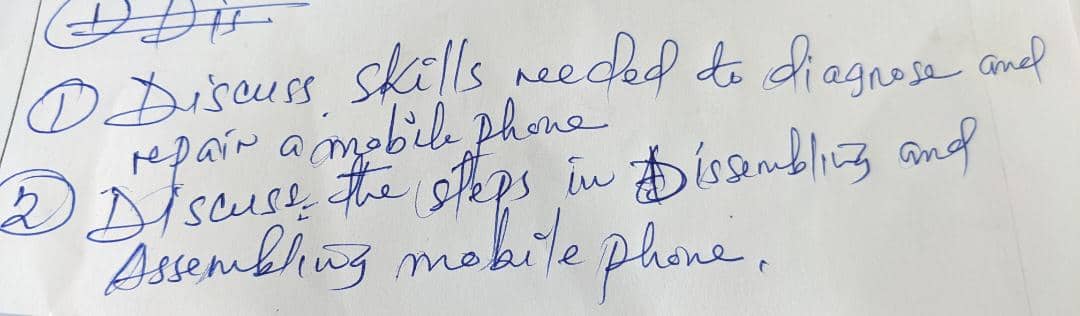 ① Discuss skills needed to diagnose and
repair a mobile phone
② Discuss the steps in Dissembling and
Assembling mobile phone.